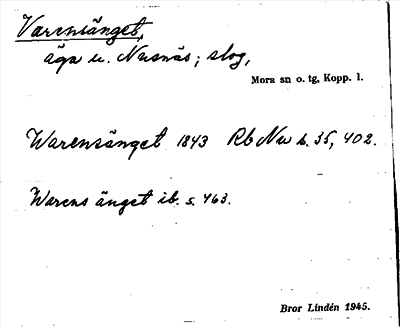 Varensänget,
äga u. Nusnäs; slog,
Mora sn o. tg, Kopp. l.
Warensänget 1843 Rb Nu s. 35, 402.
Warens änget ib. s. 463.
Bror Lindén 1945.